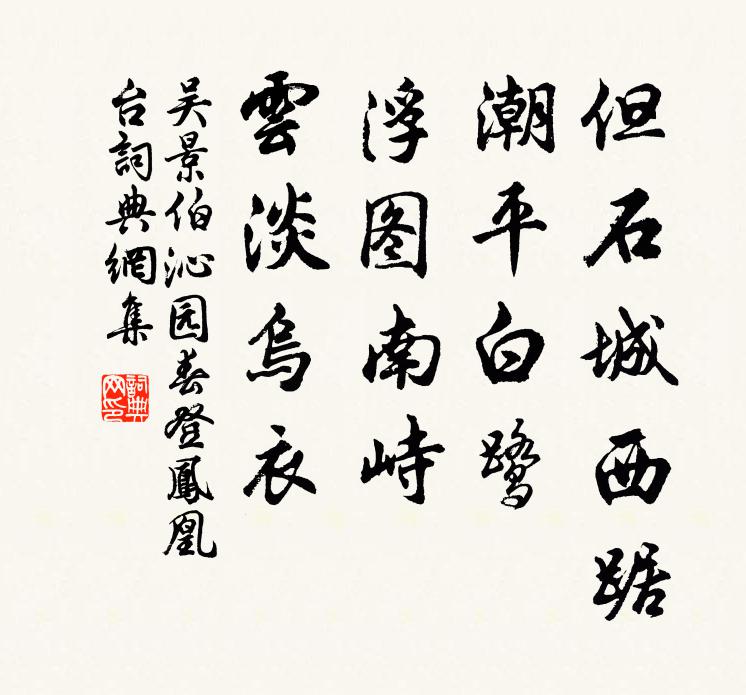 但石城西踞
潮平白鹭
浮图南峙
雲淡烏衣
吴景伯沁园春登鳳凰
台詞典網集
詞典网印